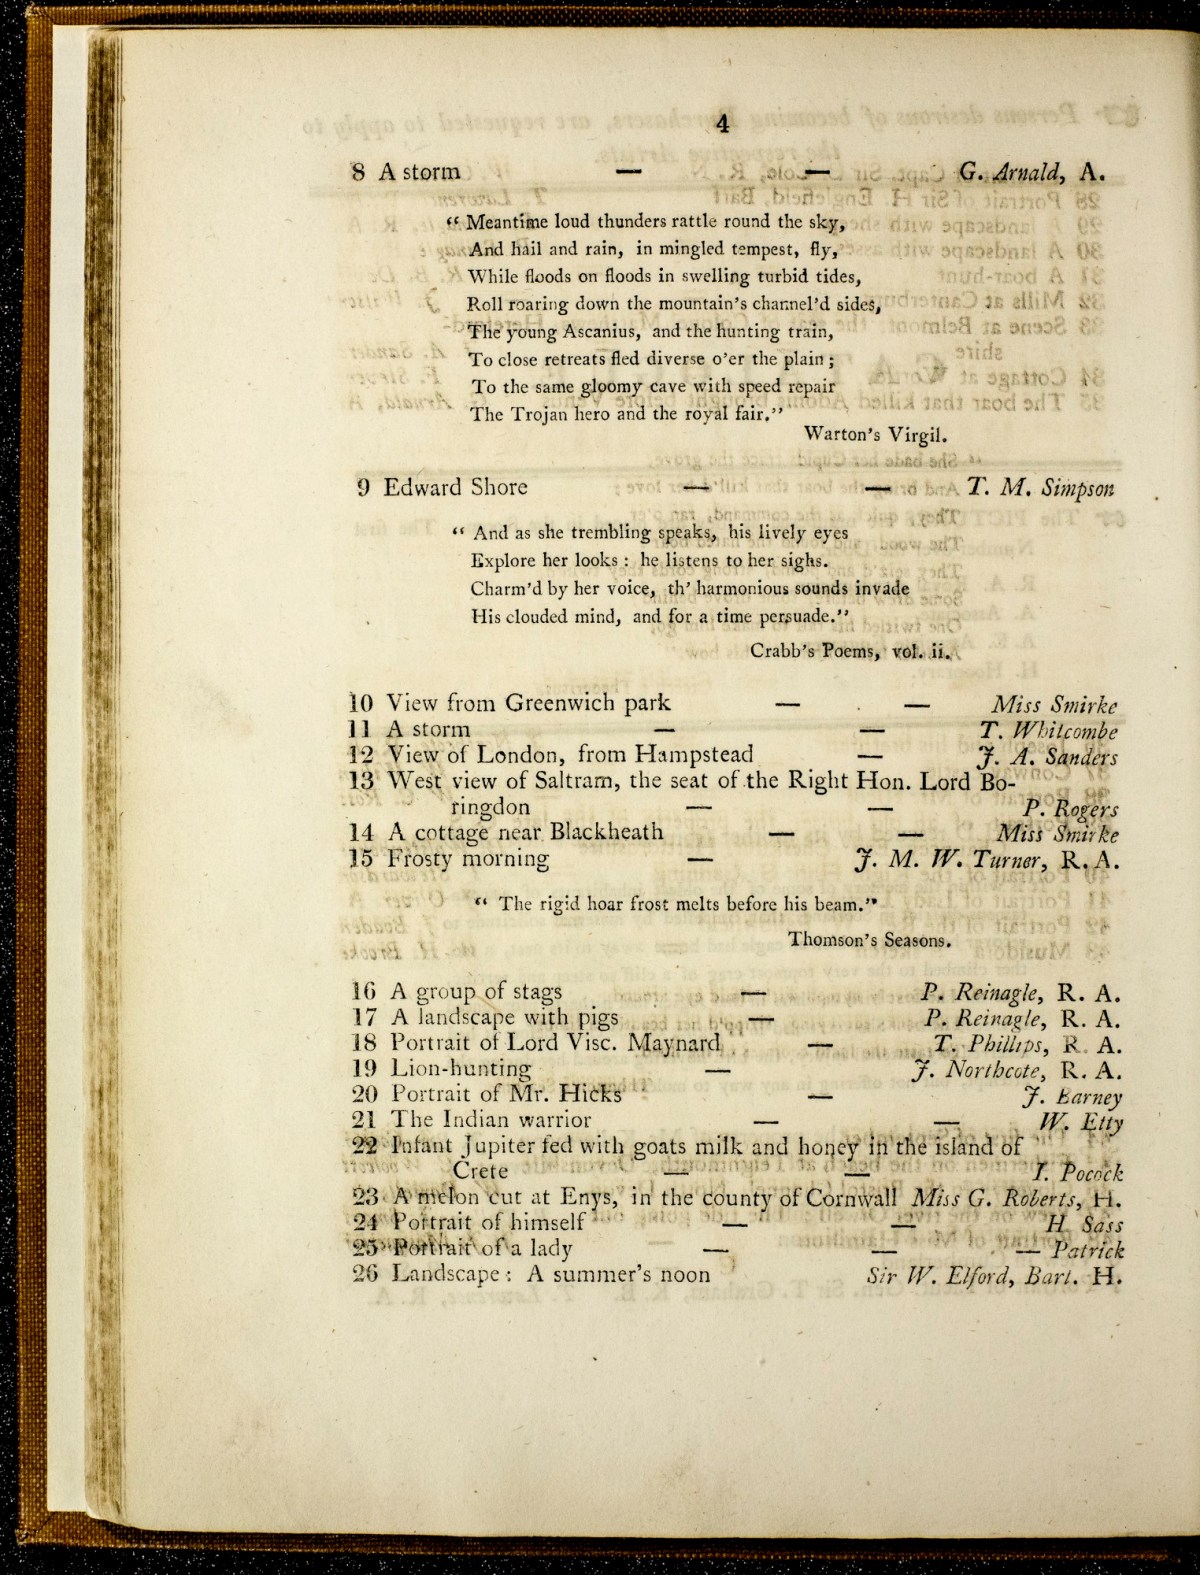 4
8 A storm — — G. Arnald, A.
“ Meantime loud thunders rattle round the sky,
And hail and rain, in mingled tempest, fly,
While floods on floods in swelling turbid tides,
Roll roaring down the mountain’s channel’d sides,
The young Ascanius, and the hunting train,
To close retreats fled diverse o’er the plain ;
To the same gloomy cave with speed repair
The Trojan hero and the royal fair.”
Warton’s Virgil.
9 Edward Shore — — T. M. Simpson
“ And as she trembling speaks, his lively eyes
Explore her looks : he listens to her sighs.
Charm’d by her voice, th’ harmonious sounds invade
His clouded mind, and for a time persuade.”
Crabb’s Poems, vol. ii.
10 View from Greenwich park — — Miss Smirke
11 A storm — — T. Whitcombe
12 View of London, from Hampstead — J. A. Sanders
13 West view of Saltram, the seat of the Right Hon. Lord Bo-
ringdon — — P. Rogers
14 A cottage near Blackheath — — Miss Smirke
15 Frosty morning — J. M. W. Turner, R. A.
“ The rigid hoar frost melts before his beam.”
Thomson’s Seasons.
16 A group of stags — P. Reinagle, R. A.
17 A landscape with pigs — P. Reinagle, R. A.
18 Portrait of Lord Visc. Maynard — T. Phillips, R. A.
19 Lion-hunting — J. Northcote, R. A.
20 Portrait of Mr. Hicks — J. Barney
21 The Indian warrior — — W. Etty
22 Infant Jupiter fed with goats milk and honey in the island of
Crete — — I. Pocock
23 A melon cut at Enys, in the county of Cornwall Miss G. Roberts, H.
24 Portrait of himself — — H Sass
25 Portrait of a lady — — — Patrick
26 Landscape : A summer’s noon Sir W. Elford, Bart. H.